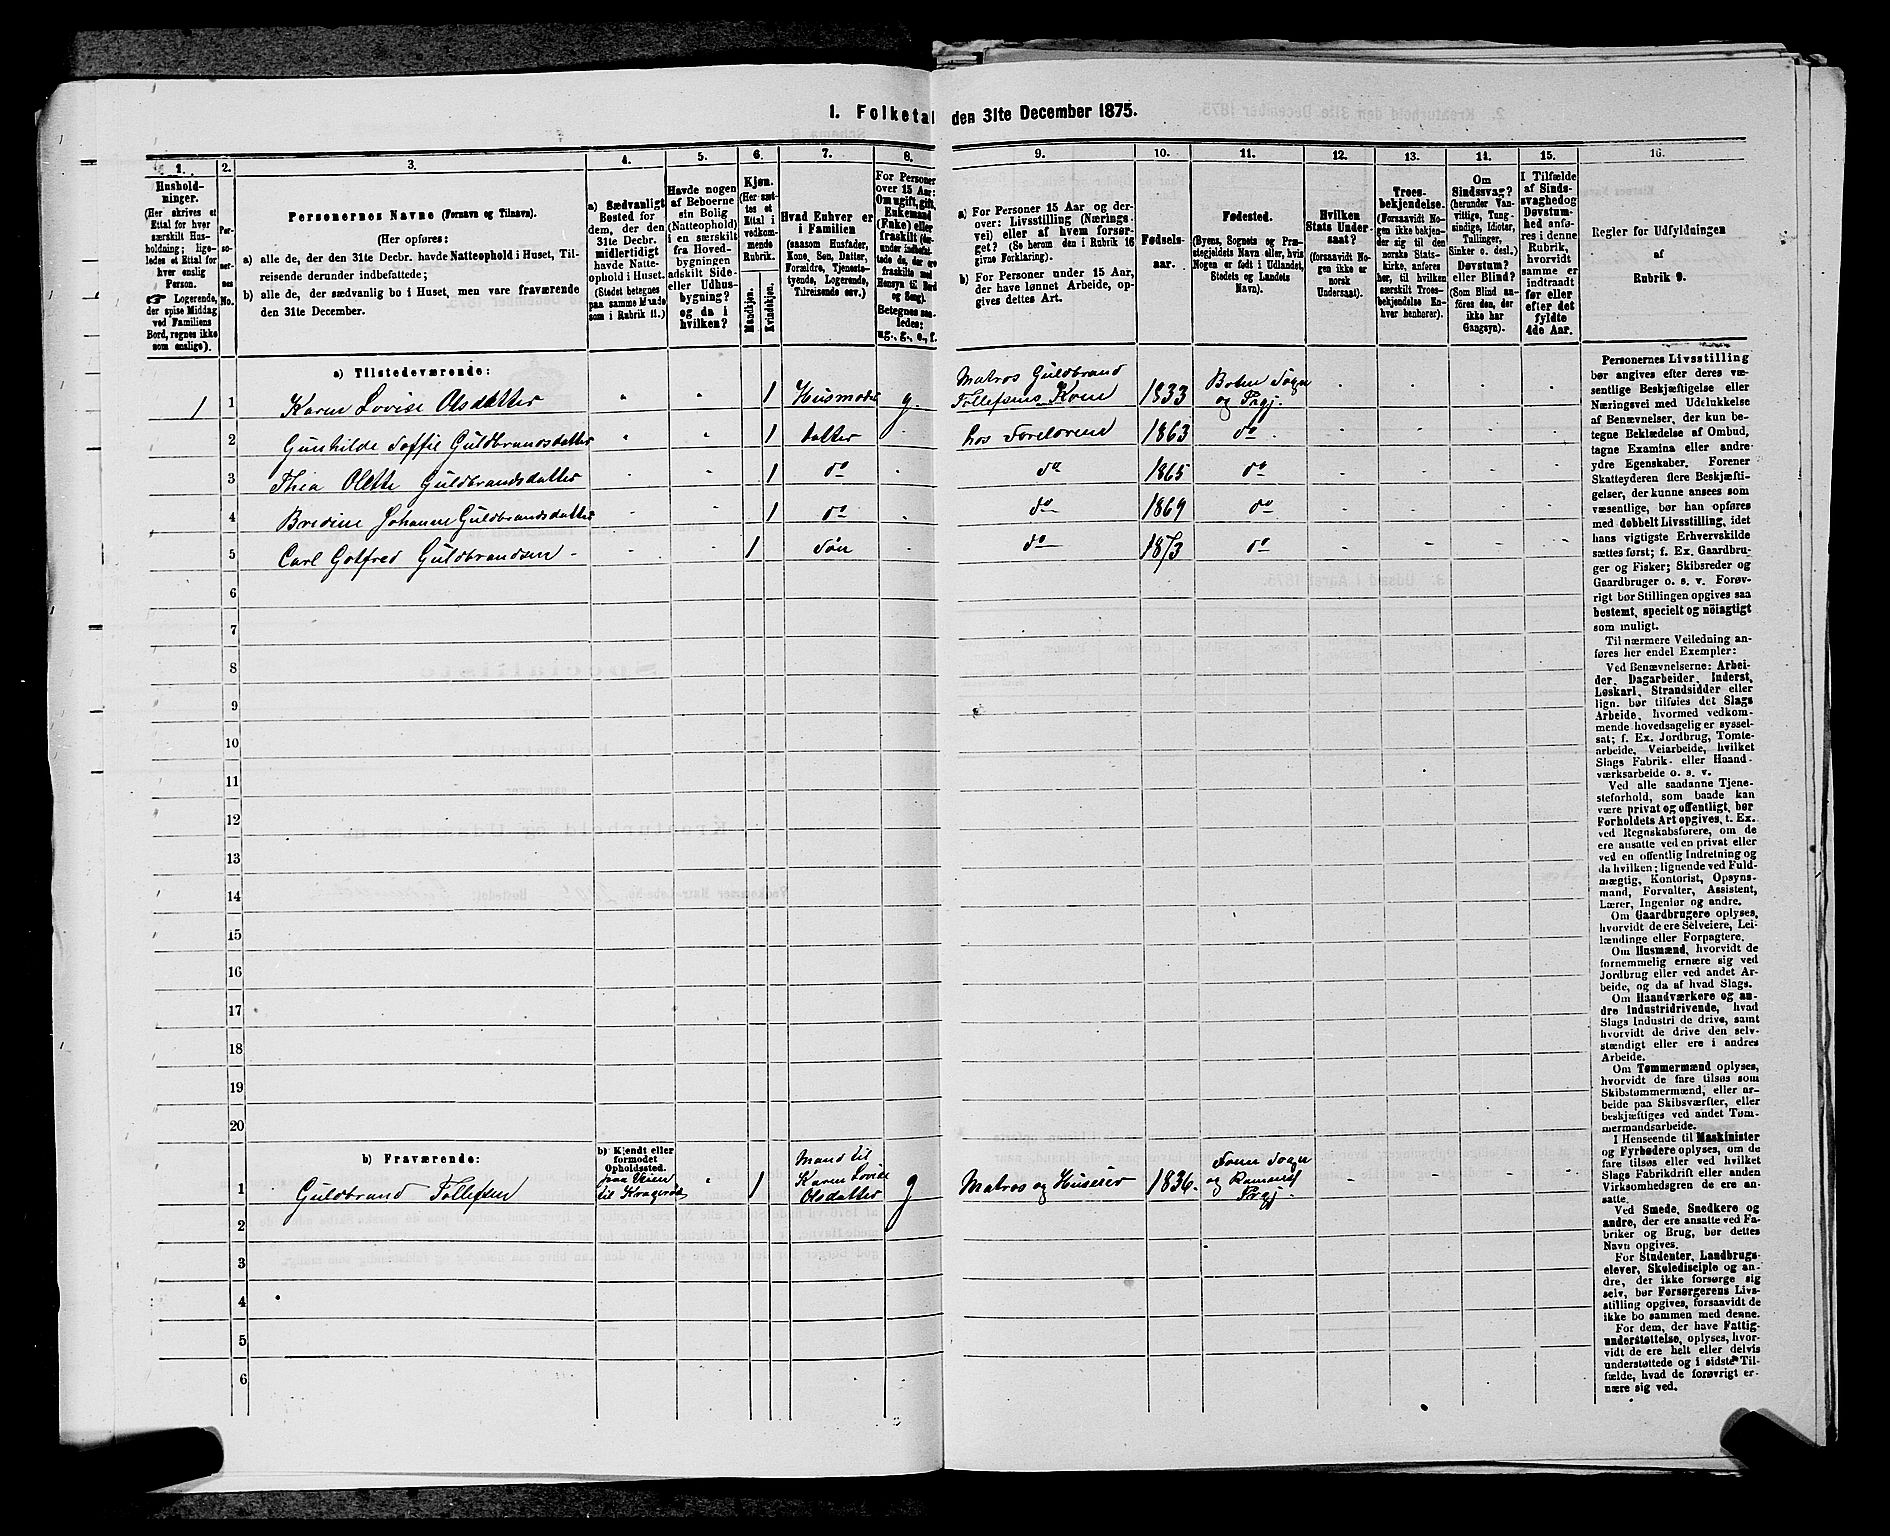 1. Folketal den 31te December 1875.
1. 2. 3. 4. 5. 6. 7. 8. 9. 10. 11. 12. 13. 14. 15. 16.
Hushold-
ninger.
(Her skrives et
Ettal for hver
særskilt Hus-
holdning; lige-
ledes et Ettal
for hver
enslig
Person.
☞ Logerende,
der spise Middag
ved Familiens
Bord, regnes ikke
som enslige).
Per-
so-
ner-
nes
No.
Personernes Navne (Fornavn og Tilnavn).
(Her opføres:
a) alle de, der den 31te Decbr. havde Natteophold i Huset, Til-
reisende derunder indbefattede;
b) alle de, der sædvanlig bo i Huset, men vare fraværende
den 31te December.
a) Sædvanligt
Bosted for
dem, der den
31te Decbr.
midlertidigt
havde Natte-
ophold i Huset.
(Stedet betegnes
paa samme Maade
som i Rubrik 11.)
Havde nogen
af Beboerne
sin Bolig
(Natteophold)
i en særskilt
fra Hoved-
bygningen
adskilt Side-
eller Udhus-
bygning?
og da i
hvilken?
Kjøn.
(Her sæt-
tes et
Ettal i
vedkom-
mende
Rubrik.
Mandkjøn.
Kvindekjøn.
Hvad Enhver er
i Familien
(saasom Husfader,
Kone, Søn, Datter,
Forældre, Tjeneste-
tyende, Logerende,
Tilreisende osv.)
For Personer
over 15 Aar:
Om ugift, gift,
Enkemand
(Enke) eller
fraskilt
Betegnes saa-
ledes:
ug., g., e., f.
a) For Personer 15 Aar og der-
over: Livsstilling (Nærings-
vei) eller af hvem forsør-
get? (Se herom den i Rubrik 16
givne Forklaring).
b) For Personer under 15 Aar,
der have lønnet Arbeide, op-
gives dettes Art.
Fødsels-
aar.
Fødested.
(Byens, Sognets og Præ-
stegjeldets Navn eller, hvis
Nogen er født i Udlandet,
Stedets og Landets
Navn).
Hvilken
Stats Under-
saat?
(forsaavidt No-
gen ikke er
norsk
Undersaat).
Troes-
bekjendelse.
(Forsaavidt No-
gen ikke bekjen-
der sig til den
norske Stats-
kirke, anføres
her, til hvilken
særskilt Troes-
bekjendelse En-
hver henhører).
Om
Sindssvag?
(herunder Van-
vittige, Tung-
sindige, Idioter,
Tullinger,
Sinker o. desl.)
Døvstum?
eller Blind?
(Som Blind an-
føres den, der
ikke har
Gangsyn).
I Tilfælde
af Sinds-
svaghed og
Døvstum-
hed anfø-
res i denne
Rubrik,
hvorvidt
samme er
indtraadt
før eller
efter det
fyldte
4de Aar.
Regler for Udfyldningen
af
Rubrik 9.
a) Tilstedeværende:
1 1 Karen Lovise Olsdatter " " 1 Husmoder g. Matros Guldbrand
Tollefsens Kone 1833 Boten Sogn
og Prgj. - - - -
2 Gunhilde Soffie Guldbrandsdatter " " 1 datter - hos Foreldrene 1863 do - - - -
3 Thea Olette Guldbrandsdatter - - 1 do - do 1865 do - - - -
4 Bredine Johanne Guldbrandsdatter - - 1 do - do 1869 do - - - -
5 Carl Gotfred Guldbrandsen - - - 1 Søn - do 1873 do - - - -
6
7
8
9
10
11
12
13
14
15
16
17
18
19
20
b) Fraværende:
b) Kjendt eller
formodet
Opholdssted.
1 Guldbrand Tollefsen paa Veien
til Kragerø " 1 Mand til
Karen Lovise
Olsdatter g Matros og Huseier 1836. Sogn
og
Prgj. - - - -
2
3
4
5
6
Personernes Livsstilling
bør angives efter deres væ-
sentlige Beskjæftigelse eller
Næringsvei med Udelukkelse
af Benævnelser, der kun be-
tegne Beklædelse af Ombud,
tagne Examina eller andre
ydre Egenskaber. Forener
Skatteyderen flere Beskjæfti-
gelser, der kunne ansees som
væsentlige, bør han opføres
med dobbelt Livsstilling, idet
hans vigtigste Erhvervskilde
sættes først; f. Ex. Gaardbru-
ger og Fisker; Skibsreder og
Gaardbruger o. s. v. Forøv-
rigt bør Stillingen opgives saa
bestemt, specielt og nöiagtigt
som muligt.
Til nærmere Veiledning an-
føres her endel Exempler:
Ved Benævnelserne: Arbei-
der, Dagarbeider, Inderst,
Løskarl, Strandsidder eller
lign. bør tilføies det Slags
Arbeide, hvormed vedkom-
mende hovedsagelig er syssel-
sat; f. Ex. Jordbrug, Tomte-
arbeide, Veiarbeide, hvilket
Slags Fabrik- eller Haand-
værksarbeide o. s. v.
Ved alle saadanne Tjene-
steforhold, som baade kan
være privat og offentligt, bør
Forholdets Art opgives, t. Ex.
ved Regnskabsførere, om de
ere ansatte ved en privat eller
ved en offentlig Indretning og
da hvilken; lignende ved Fuld-
mægtig, Kontorist, Opsyns-
mand, Forvalter, Assistent,
Lærer, Ingeniør og andre.
Om Gaardbrugere oplyses,
hvorvidt de ere Selveiere, Lei-
lændinge eller Forpagtere.
Om Husmænd, hvorvidt de
fornemmelig ernære sig ved
Jordbrug eller ved andet Ar-
beide, og da af hvad Slags.
Om Haandværkere og an-
dre Industridrivende, hvad
Slags Industri de drive, samt
hvorvidt de drive den selv-
stændigt eller ere i andres
Arbeide.
Om Tømmermænd oplyses,
hvorvidt de fare tilsøs som
Skibstømmermænd, eller ar-
beide paa Skibsværfter, eller
beskjæftiges ved andet Tøm-
mermandsarbeide.
I Henseende til Maskinister
og Fyrbødere oplyses, om de
fare tilsøs eller ved hvilket
Slags Fabrikdrift eller anden
Virksomhedsgren de ere an-
satte.
Ved Smede, Snedkere og
andre, der ere ansatte ved Fa-
briker og Brug, bør dettes
Navn opgives.
For Studenter, Landbrugs-
elever, Skoledisciple og an-
dre, der ikke forsørge sig
selv, bør Forsørgerens Livs-
stilling opgives, forsaavidt de
ikke bo sammen med denne.
For dem, der have Fattig-
understøttelse, oplyses, hvor-
vidt de ere helt eller delvis
understøttede og i sidste Til-
fælde, hvad de forøvrigt er-
nære sig ved.